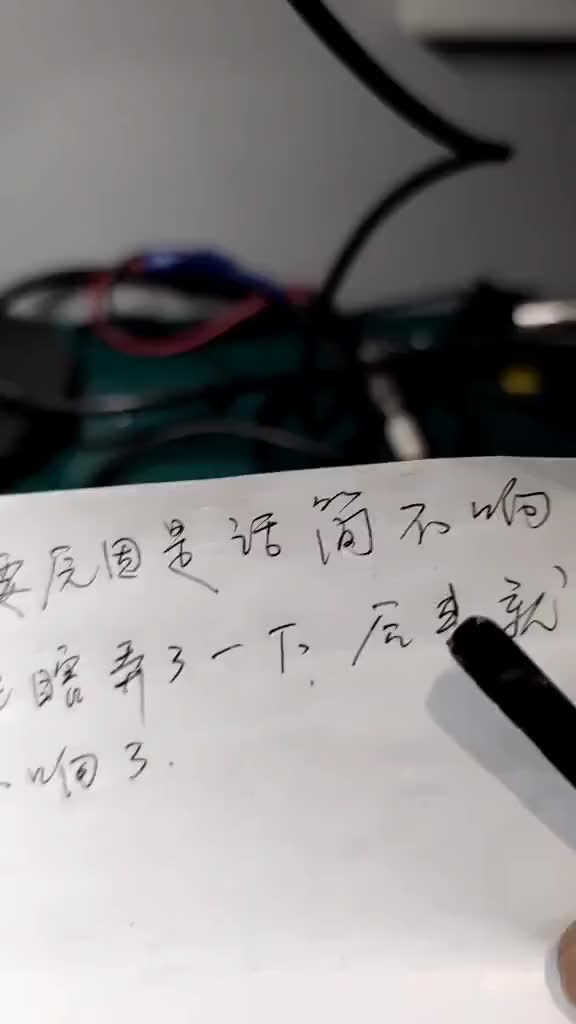 要原因是话筒不响
瞎弄了一下.后来就
响了.